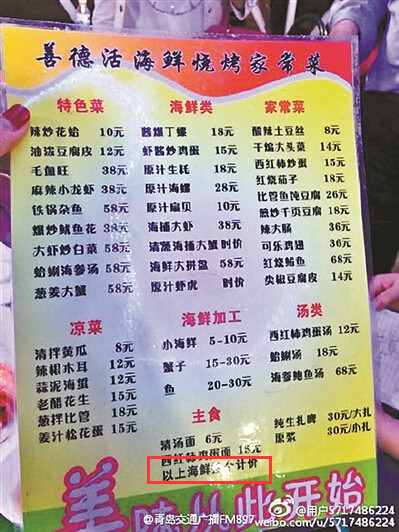 善德活海鲜烧烤家常菜
特色菜
辣炒花蛤 10元
油泼豆腐皮 12元
毛血旺 38元
麻辣小龙虾 38元
铁锅杂鱼 58元
爆炒鱿鱼花 38元
大虾炒白菜 58元
蛤蜊海参汤 58元
葱姜大蟹 58元
海鲜类
酱爆丁螺 18元
虾酱炒鸡蛋 15元
原汁生蚝 18元
原汁海螺 28元
原汁扇贝 10元
海捕大虾 38元
清蒸海捕大蟹 时价
海鲜大拼盘 58元
原汁虾虎 时价
家常菜
酸辣土豆丝 8元
干煸大头菜 14元
西红柿炒蛋 15元
红烧茄子 18元
比管鱼炖豆腐 26元
煎炒千页豆腐 18元
辣大肠 36元
可乐鸡翅 36元
红烧鲅鱼 68元
尖椒豆腐皮 14元
凉菜
清拌黄瓜 8元
辣根木耳 12元
蒜泥海蜇 12元
老醋花生 15元
葱拌比管 18元
姜汁松花蛋 15元
海鲜加工
小海鲜 5-10元
蟹子 15-30元
鱼 20-30元
主食
清汤面 6元
西红柿鸡蛋面 15元
以上海鲜 不计价
汤类
西红柿鸡蛋汤 12元
蛤蜊汤 18元
海参鲍鱼汤 68元
纯生扎啤 30元/大扎
原浆 30元/小扎
美 从此开始
@用户5717486224
@青岛交通广播FM897
weibo.com/u/5717486224